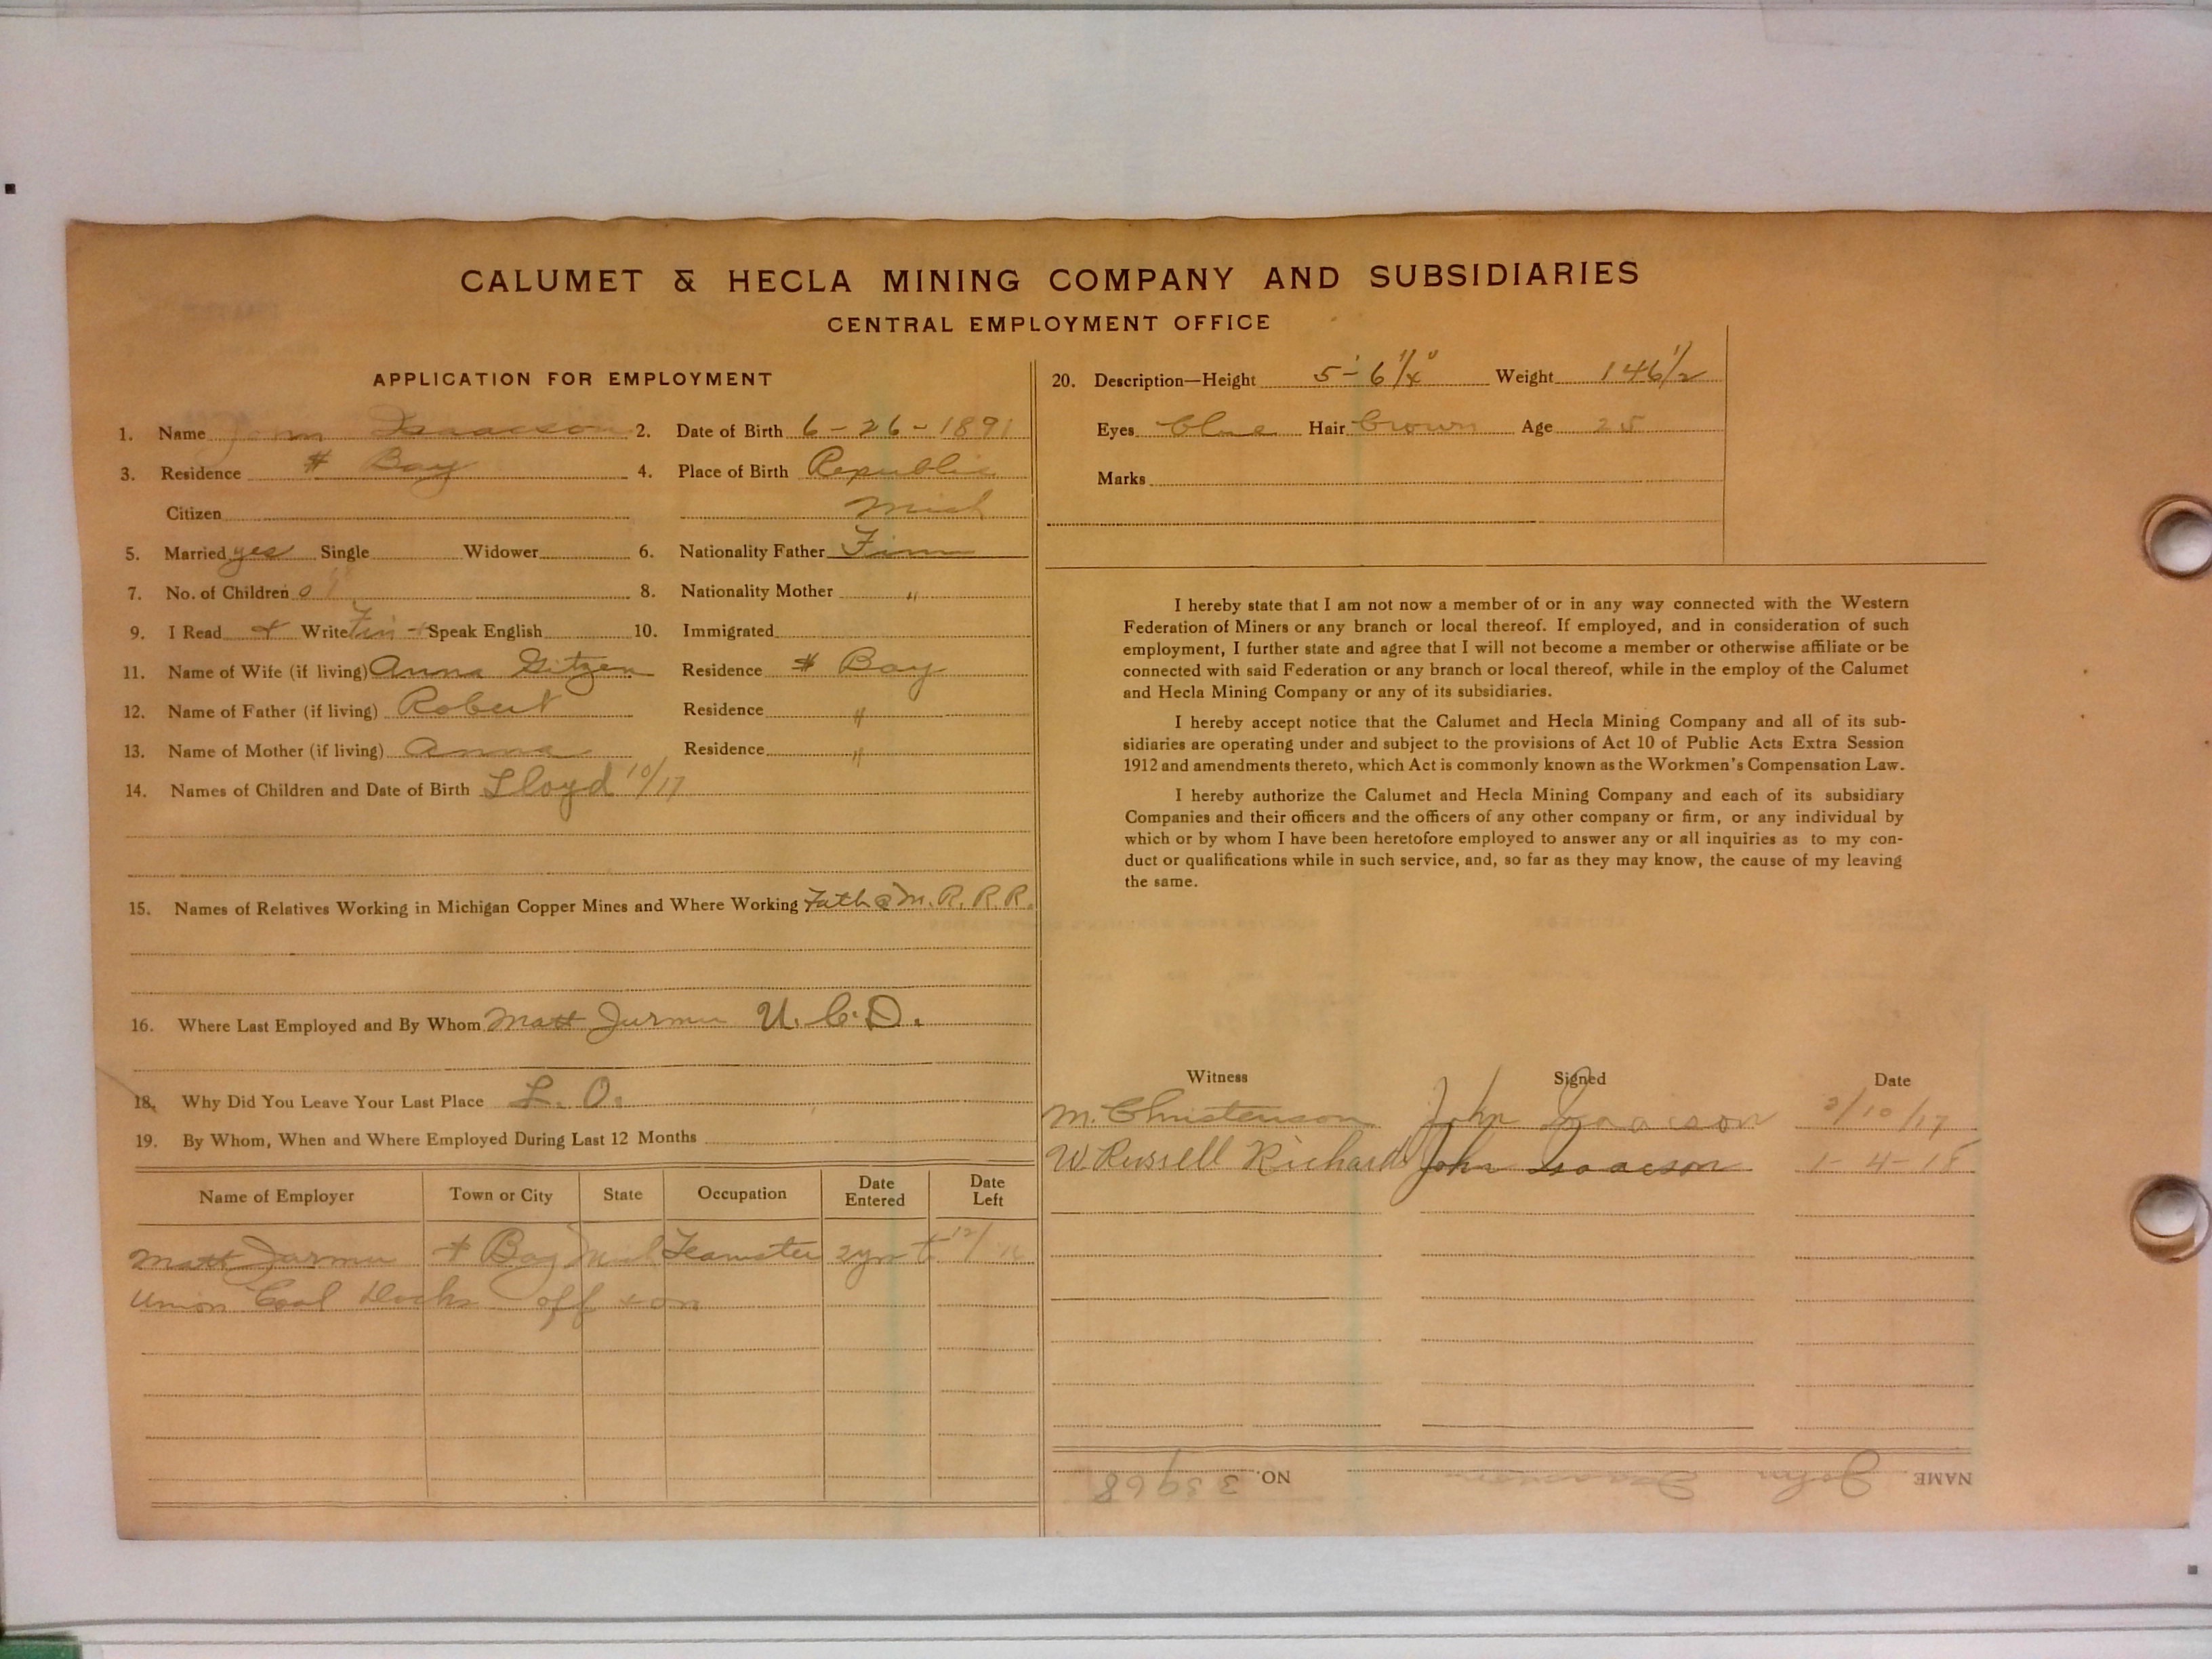 CALUMET & HECLA MINING COMPANY AND SUBSIDIARIES
CENTRAL EMPLOYMENT OFFICE
APPLICATION FOR EMPLOYMENT
1. Name John Isaacson 2. Date of Birth 6-26-1891
3. Residence # Bay 4. Place of Birth Republic
Citizen Mich
5. Married yes Single Widower 6. Nationality Father Finn
7. No. of Children 0 8. Nationality Mother "
9. I Read + Write Fin + Speak English 10. Immigrated
11. Name of Wife (if living) Anna Gitzen Residence # Bay
12. Name of Father (if living) Robert Residence "
13. Name of Mother (if living) Anna Residence "
14. Names of Children and Date of Birth Lloyd 10/17
15. Names of Relatives Working in Michigan Copper Mines and Where Working Fath @ M. R. R. R.
16. Where Last Employed and By Whom Matt Jurmu U. C. D.
18. Why Did You Leave Your Last Place L. O.
19. By Whom, When and Where Employed During Last 12 Months
Name of Employer Town or City State Occupation Date Entered Date Left
Matt Jurmu # Bay Mich Teamster 2 yrs to 12/
Union Coal Docks off + on
20. Description—Height 5'-6 1/4" Weight 146 1/2
Eyes blue Hair brown Age 25
Marks
I hereby state that I am not now a member of or in any way connected with the Western
Federation of Miners or any branch or local thereof. If employed, and in consideration of such
employment, I further state and agree that I will not become a member or otherwise affiliate or be
connected with said Federation or any branch or local thereof, while in the employ of the Calumet
and Hecla Mining Company or any of its subsidiaries.
I hereby accept notice that the Calumet and Hecla Mining Company and all of its sub-
sidiaries are operating under and subject to the provisions of Act 10 of Public Acts Extra Session
1912 and amendments thereto, which Act is commonly known as the Workmen's Compensation Law.
I hereby authorize the Calumet and Hecla Mining Company and each of its subsidiary
Companies and their officers and the officers of any other company or firm, or any individual by
which or by whom I have been heretofore employed to answer any or all inquiries as to my con-
duct or qualifications while in such service, and, so far as they may know, the cause of my leaving
the same.
Witness Signed Date
M. Christenson John Isaacson 2/10/17
W. Russell Richards John Isaacson 1-4-18
NAME John Isaacson NO. 33968